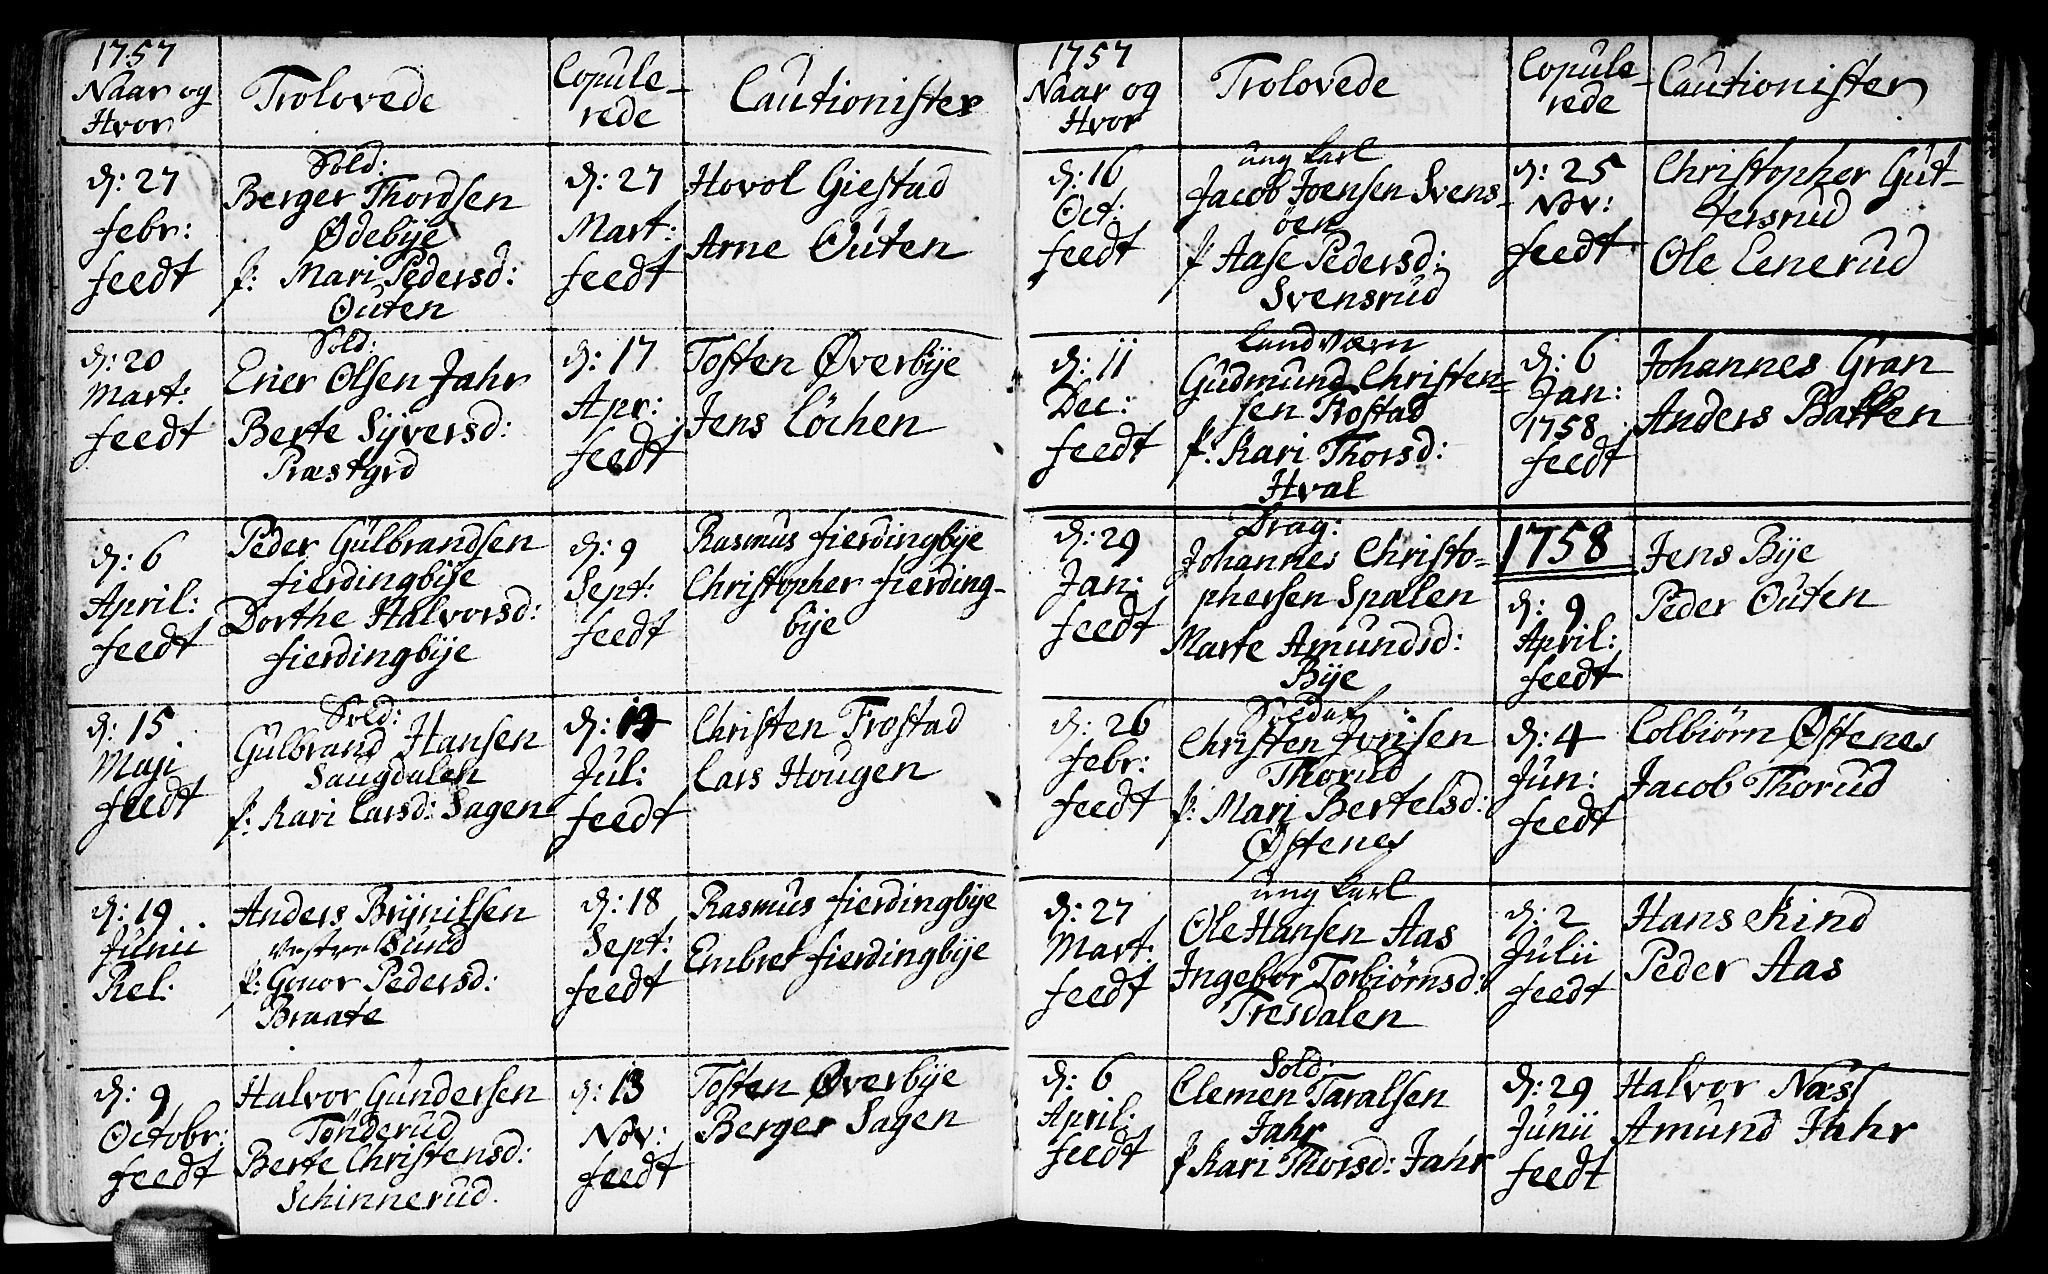 1757
Naar og
Hvor
Trolovede
Copule-
rede
Cautionister
d: 27
febr:
feedt
Sold:
Berger Thordsen
Ødebije
p: Mari Pedersd:
Outen
d: 27
Mart:
feedt
Hovol Giestad
Arne Outen
d: 20
Mart:
feedt
Sold:
Ener Olsen Jahr
Berte Syversd:
Præstgrd
d: 17
Apr:
feedt
Tosten Øverbije
Jens Löchen
d: 6
April:
feedt
Peder Gulbrandsen
fierdingbije
Dorthe Halvorsd:
fierdingbije
d: 9
Sept:
feedt
Rasmus fierdingbije
Christopher fierding-
bije
d: 15
Maji
feedt
Sold:
Gulbrand Hansen
Saugdalen
p: Kari Larsd: Sagen
d:
Jul:
feedt
Christen Frostad
Lars Hougen
d: 19
Junii
Rel:
Anders Brynilsen
Vestre Sund
p: Gonor Pedersd:
Braate
d: 18
Sept:
feedt
Rasmus fierdingbije
Embret fierdingbije
d: 9
Octobr:
feedt
Halvor Gundersen
Tönderud
Berte Christensd:
Schinnerud.
d: 13
Nov:
feedt
Tosten Øverbije
Berger Sagen
1757
Naar og
Hvor
Trolovede
Copule-
rede
Cautionister
d: 16
Oct:
feedt
ung karl
Jacob Joensen Svens-
öen
p Aase Pedersd:
Svensrud
d: 25
Nov:
feedt
Christopher Gut-
tersrud
Ole Lenerud
d: 11
Dec:
feedt
Landværn
Gudmund Christen-
sen Frostad
p: Kari Thorsd:
Hval
d: 6
Jan:
1758
feedt
Johannes Gran
Anders Bakken
d: 29
Jan:
feedt
Drag:
Johannes Christo-
phersen Spalen
Marte Amundsd:
Bije
1758
d: 9
April:
feedt
Jens Bije
Peder Outen
d: 26
febr:
feedt
Soldat
Christen Joensen
Thorud
p: Mari Bertelsd:
Østenes
d: 4
Jun:
feedt
Colbiörn Østenes
Jacob Thorud
d: 27
Mart:
feedt
ung karl
Ole Hansen Aas
Ingebor Torbiörnsd:
Tresdalen
d: 2
Julii
feedt
Hans Kind
Peder Aas
d: 6
April:
feedt
Sold:
Clemen Taralsen
Jahr
p Kari Thorsd: Jahr
d: 29
Junii
feedt
Halvor Næss
Amund Jahr